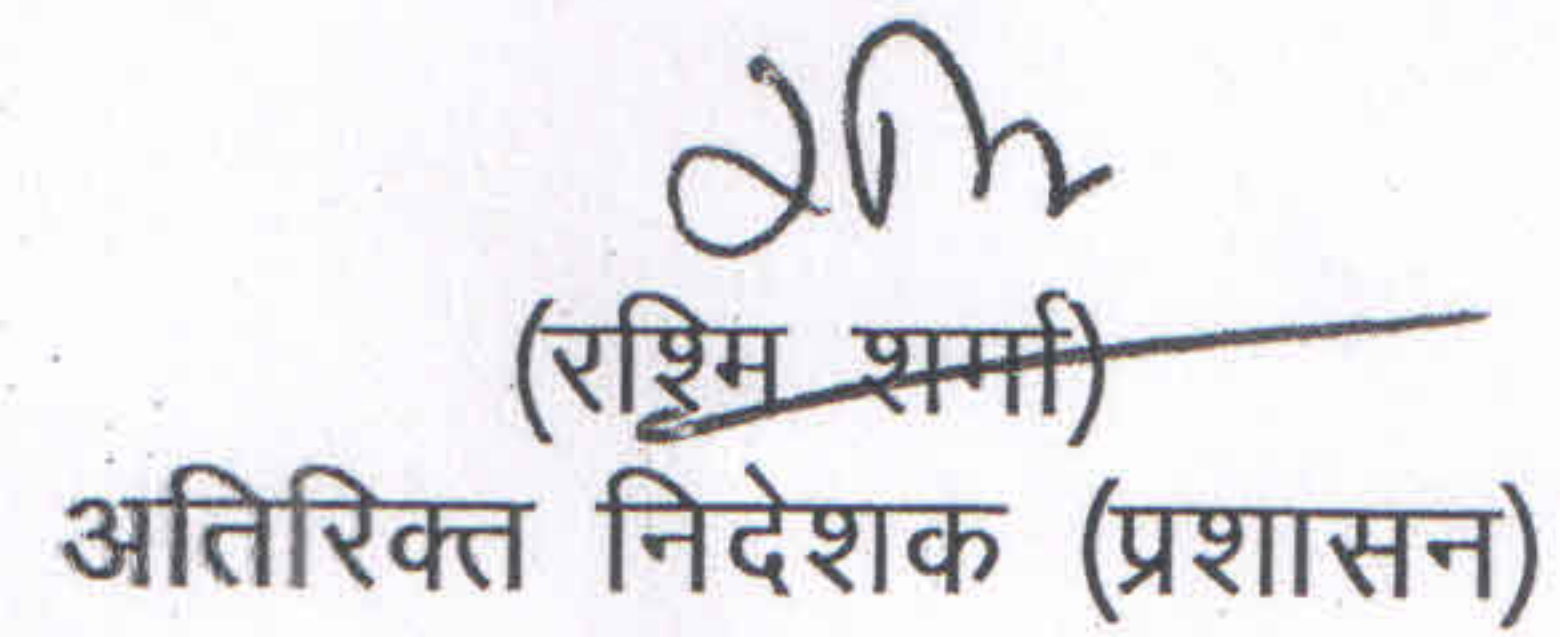 (रश्मि शर्मा)
अतिरिक्त निदेशक (प्रशासन)